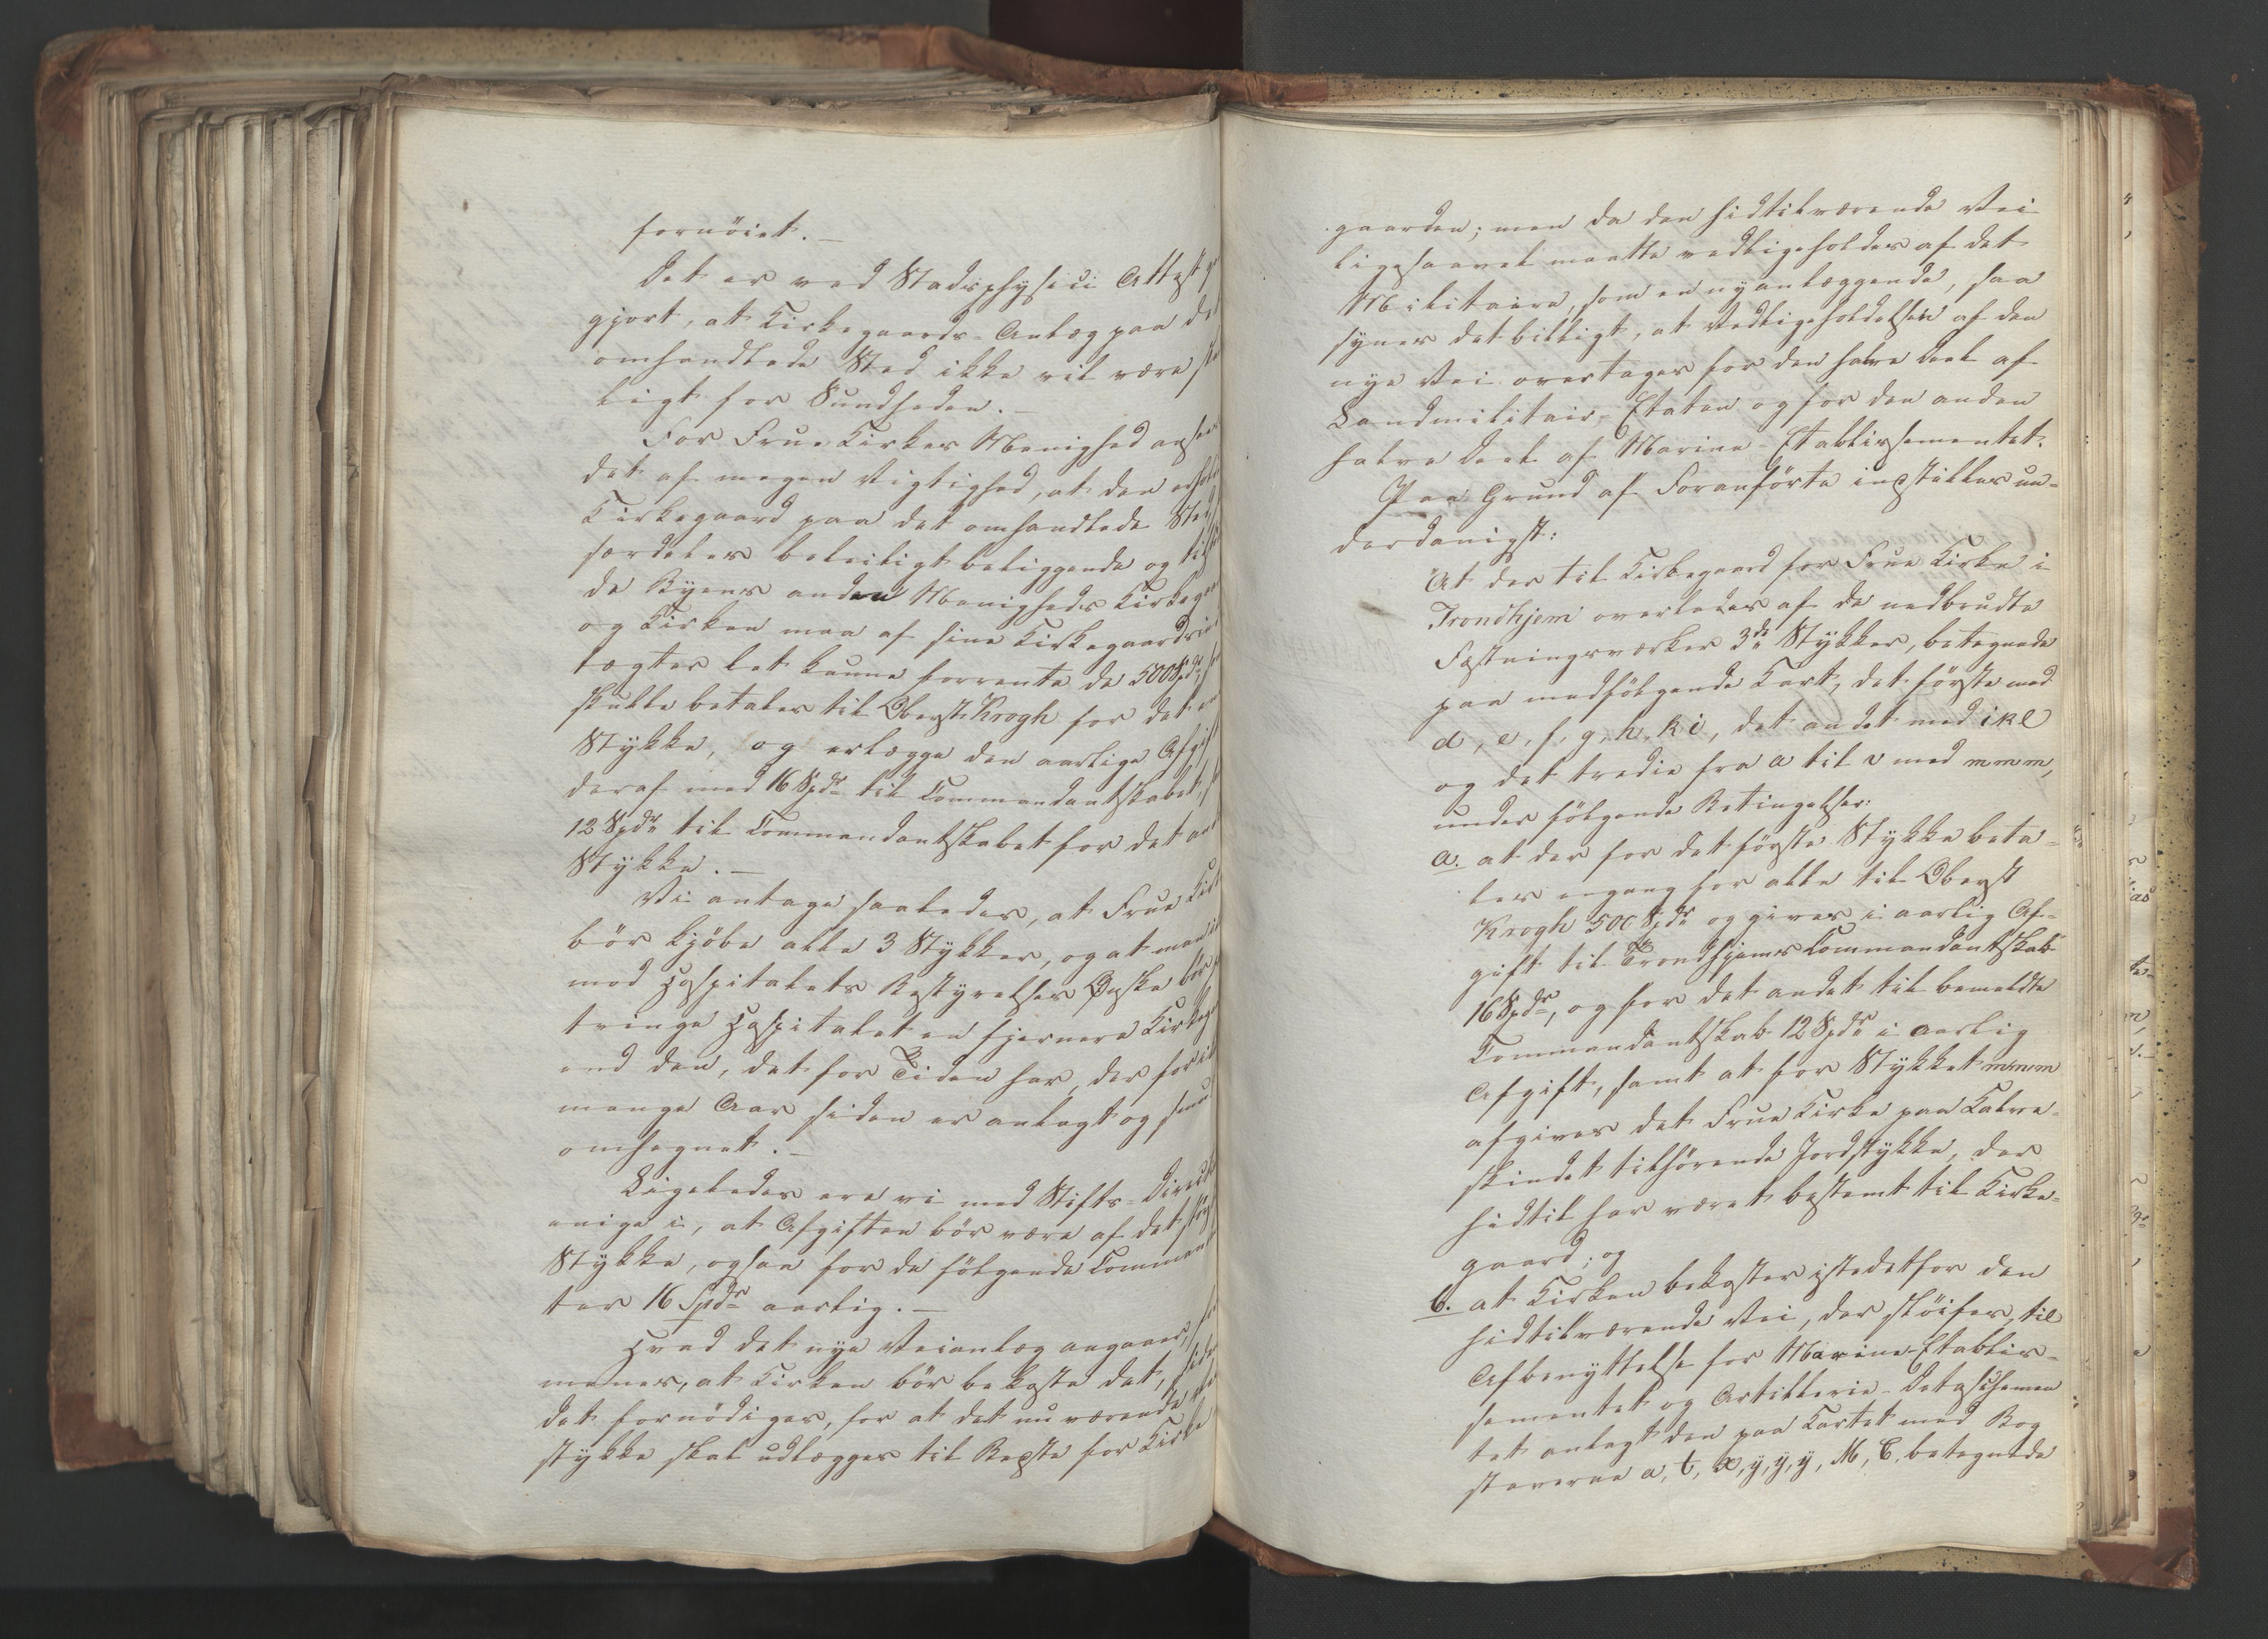 fornöiet. —
Det er ved Stadsphysici Attest
gjort, at Kirkegaards-Anlæg paa
omhandlede Sted ikke vil være
ligt for Sundheden. —
For Frue Kirkes Menighed
det af megen Vigtighed, at den
Kirkegaard paa det omhandlede
særdeles beleiligt beliggende og
de Byens anden Menigheds
og Kirken maa af sine
tægter let kunne forrente de 500 Spdr
skulle betales til Oberst Krogh for det
Stykke, og erlægge den aarlige
deraf med 16 Spdr til Commandantskabet,
12 Spdr til Commandantskabet for det
Stykke. —
Vi antage saaledes, at Frue
bör kjöbe alle 3 Stykker, og at man
mod Hospitalets Bestyrelses Önske bör
tvinge Hospitalet en fjernere
end den, det for Tiden har, der for
mange Aar siden er anlagt og
omhegnet. —
Ligeledes ere vi med Stifts-
enige i, at Afgiften bör være af det
Stykke, ogsaa for de fölgende
ter 16 Spdr aarlig. —
Hvad det nye Veianlæg angaaer,
menes, at Kirken bör bekoste det,
det fornödiges, for at det nu værende
stykke skal udlægges til Bedste for
gaarden; men da den hidtilværende Vei
ligesaavel maatte vedligeholdes af det
Militaire, som en nyanlæggende, saa
synes det billigt, at Vedligeholdelsen af den
nye Vei overtages for den halve Deel af
Landmilitair-Etaten og for den anden
halve Deel af Marine-Etablissementet.
Paa Grund af Foranförte indstilles un-
derdanigst:
At der til Kirkegaard for Frue Kirke i
Trondhjem overlades af de nedbrudte
Fæstningsværker 3de Stykker, betegnede
paa medfölgende Kart, det förste med
d, e, f, g, h, k i, det andet med i k l
og det tredie fra a til v med m m m,
under fölgende Betingelser:
a. at der for det förste Stykke beta-
les engang for alle til Oberst
Krogh 500 Spdr og gives i aarlig Af-
gift til Trondhjems Commandantskab
16 Spdr, og for det andet til bemeldte
Commandantskab 12 Spdr i aarlig
Afgift, samt at for Stykket m m m
afgives det Frue Kirke paa Kalve-
skindet tilhörende Jordstykke, der
hidtil har været bestemt til Kirke-
gaard; og
b. at Kirken bekoster istedetfor den
hidtilværende Vei, der slöifes, til
Afbenyttelse for Marine-Etablis-
sementet og Artillerie-Detaschemen
tet anlagt den paa Kartet med Bog
staverne a, t, x, y, y, y, M, C. betegnede